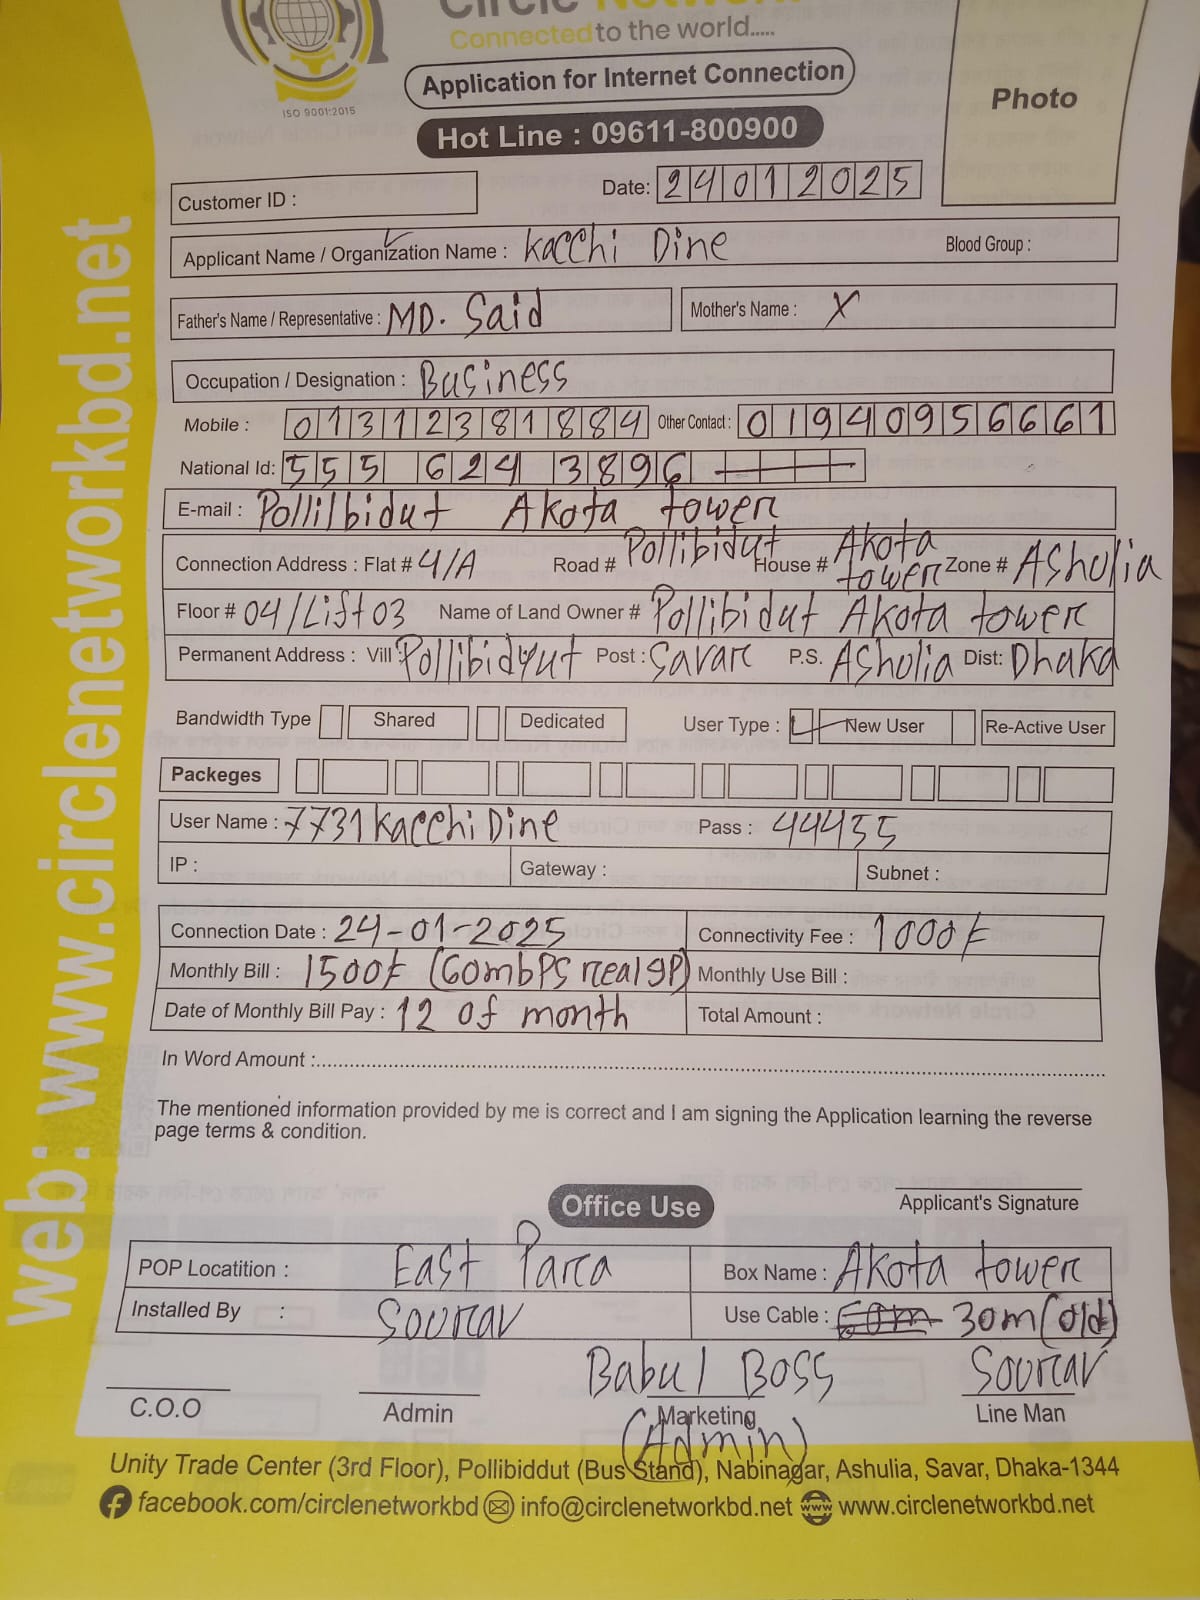 Circle Network
Connected to the world.....
ISO 9001:2015
Application for Internet Connection
Hot Line : 09611-800900
Photo
Customer ID :
Date: 24012025
Applicant Name / Organization Name : Kacchi Dine Blood Group :
Father's Name / Representative : MD. Said Mother's Name : X
Occupation / Designation : Business
Mobile : 01312381884 Other Contact : 01940956661
National Id: 555 624 3896
E-mail : Pollilbidut Akota tower
Connection Address : Flat # 4/A Road # Pollibidut House # Akota tower Zone # Asholia
Floor # 04/Lift 03 Name of Land Owner # Pollibidut Akota tower
Permanent Address : Vill Pollibidyut Post : Savar P.S. Asholia Dist: Dhaka
Bandwidth Type Shared Dedicated User Type : New User Re-Active User
Packeges
User Name : 7731KacchiDine Pass : 44455
IP : Gateway : Subnet :
Connection Date : 24-01-2025 Connectivity Fee : 1000৳
Monthly Bill : 1500৳ (60mbPS real gP) Monthly Use Bill :
Date of Monthly Bill Pay : 12 of month Total Amount :
In Word Amount :
The mentioned information provided by me is correct and I am signing the Application learning the reverse
page terms & condition.
Applicant's Signature
Office Use
POP Locatition : East Para Box Name : Akota tower
Installed By : Sourav Use Cable : 30m (old)
Babul Boss Sourav
C.O.O Admin Marketing Line Man
(Admin)
Unity Trade Center (3rd Floor), Pollibiddut (Bus Stand), Nabinagar, Ashulia, Savar, Dhaka-1344
facebook.com/circlenetworkbd info@circlenetworkbd.net www www.circlenetworkbd.net
web: www.circlenetworkbd.net